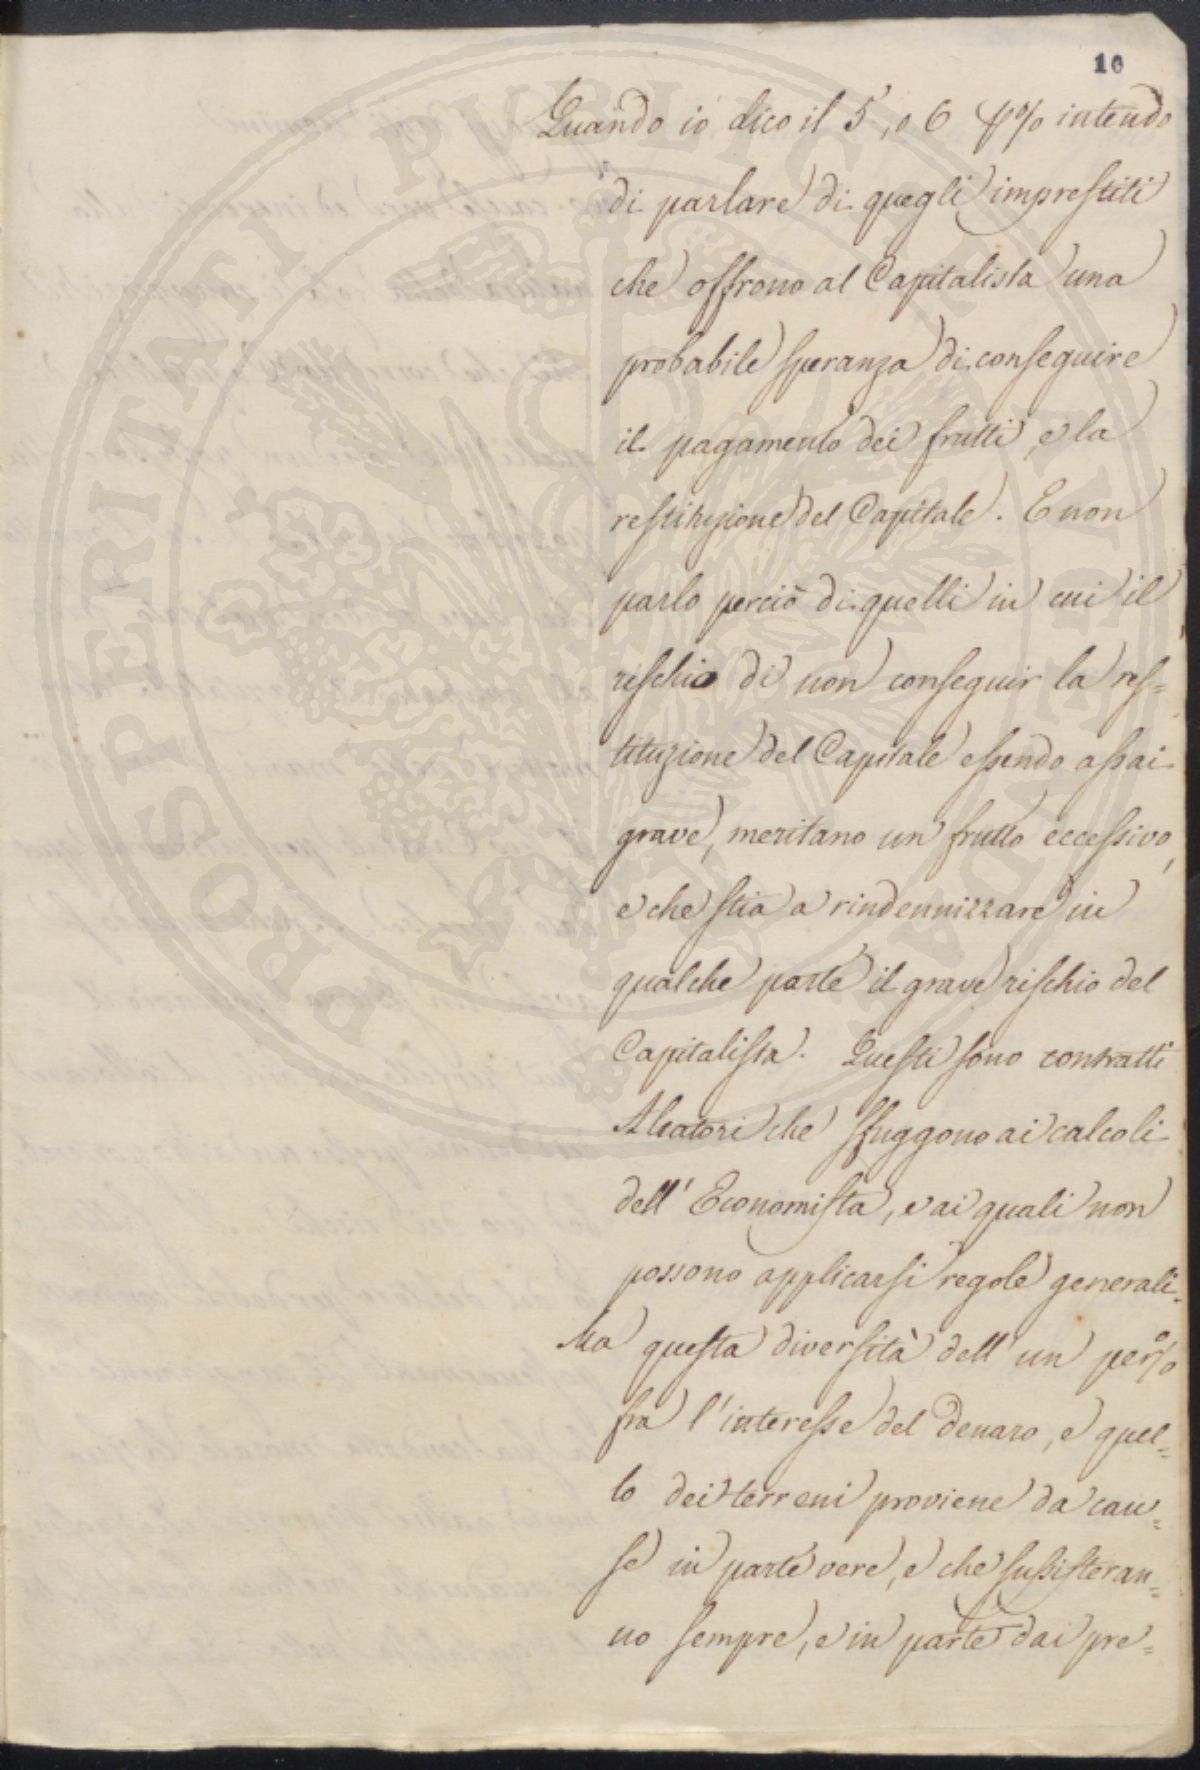 10
Quando io dico il 5, o 6 p% intendo
di parlare di quegli imprestiti
che offrono al Capitalista una
probabile speranza di conseguire
il pagamento dei frutti, e la
restituzione del Capitale. E non
parlo perciò di quelli in cui il
rischio di non conseguir la res=
tituzione del Capitale essendo assai
grave, meritano un frutto eccessivo,
e che stia a rindennizzare in
qualche parte il grave rischio del
Capitalista. Questi sono contratti
Aleatori che sfuggono ai calcoli
dell' Economista, e ai quali non
possono applicarsi regole generali.
Ma questa diversità dell' un per%
fra l'interesse del denaro, e quel=
lo dei terreni proviene da cau=
se in parte vere, e che sussisteran=
no sempre, e in parte dai pre=
PROSPERITATI PVBLICAE AVGENDAE